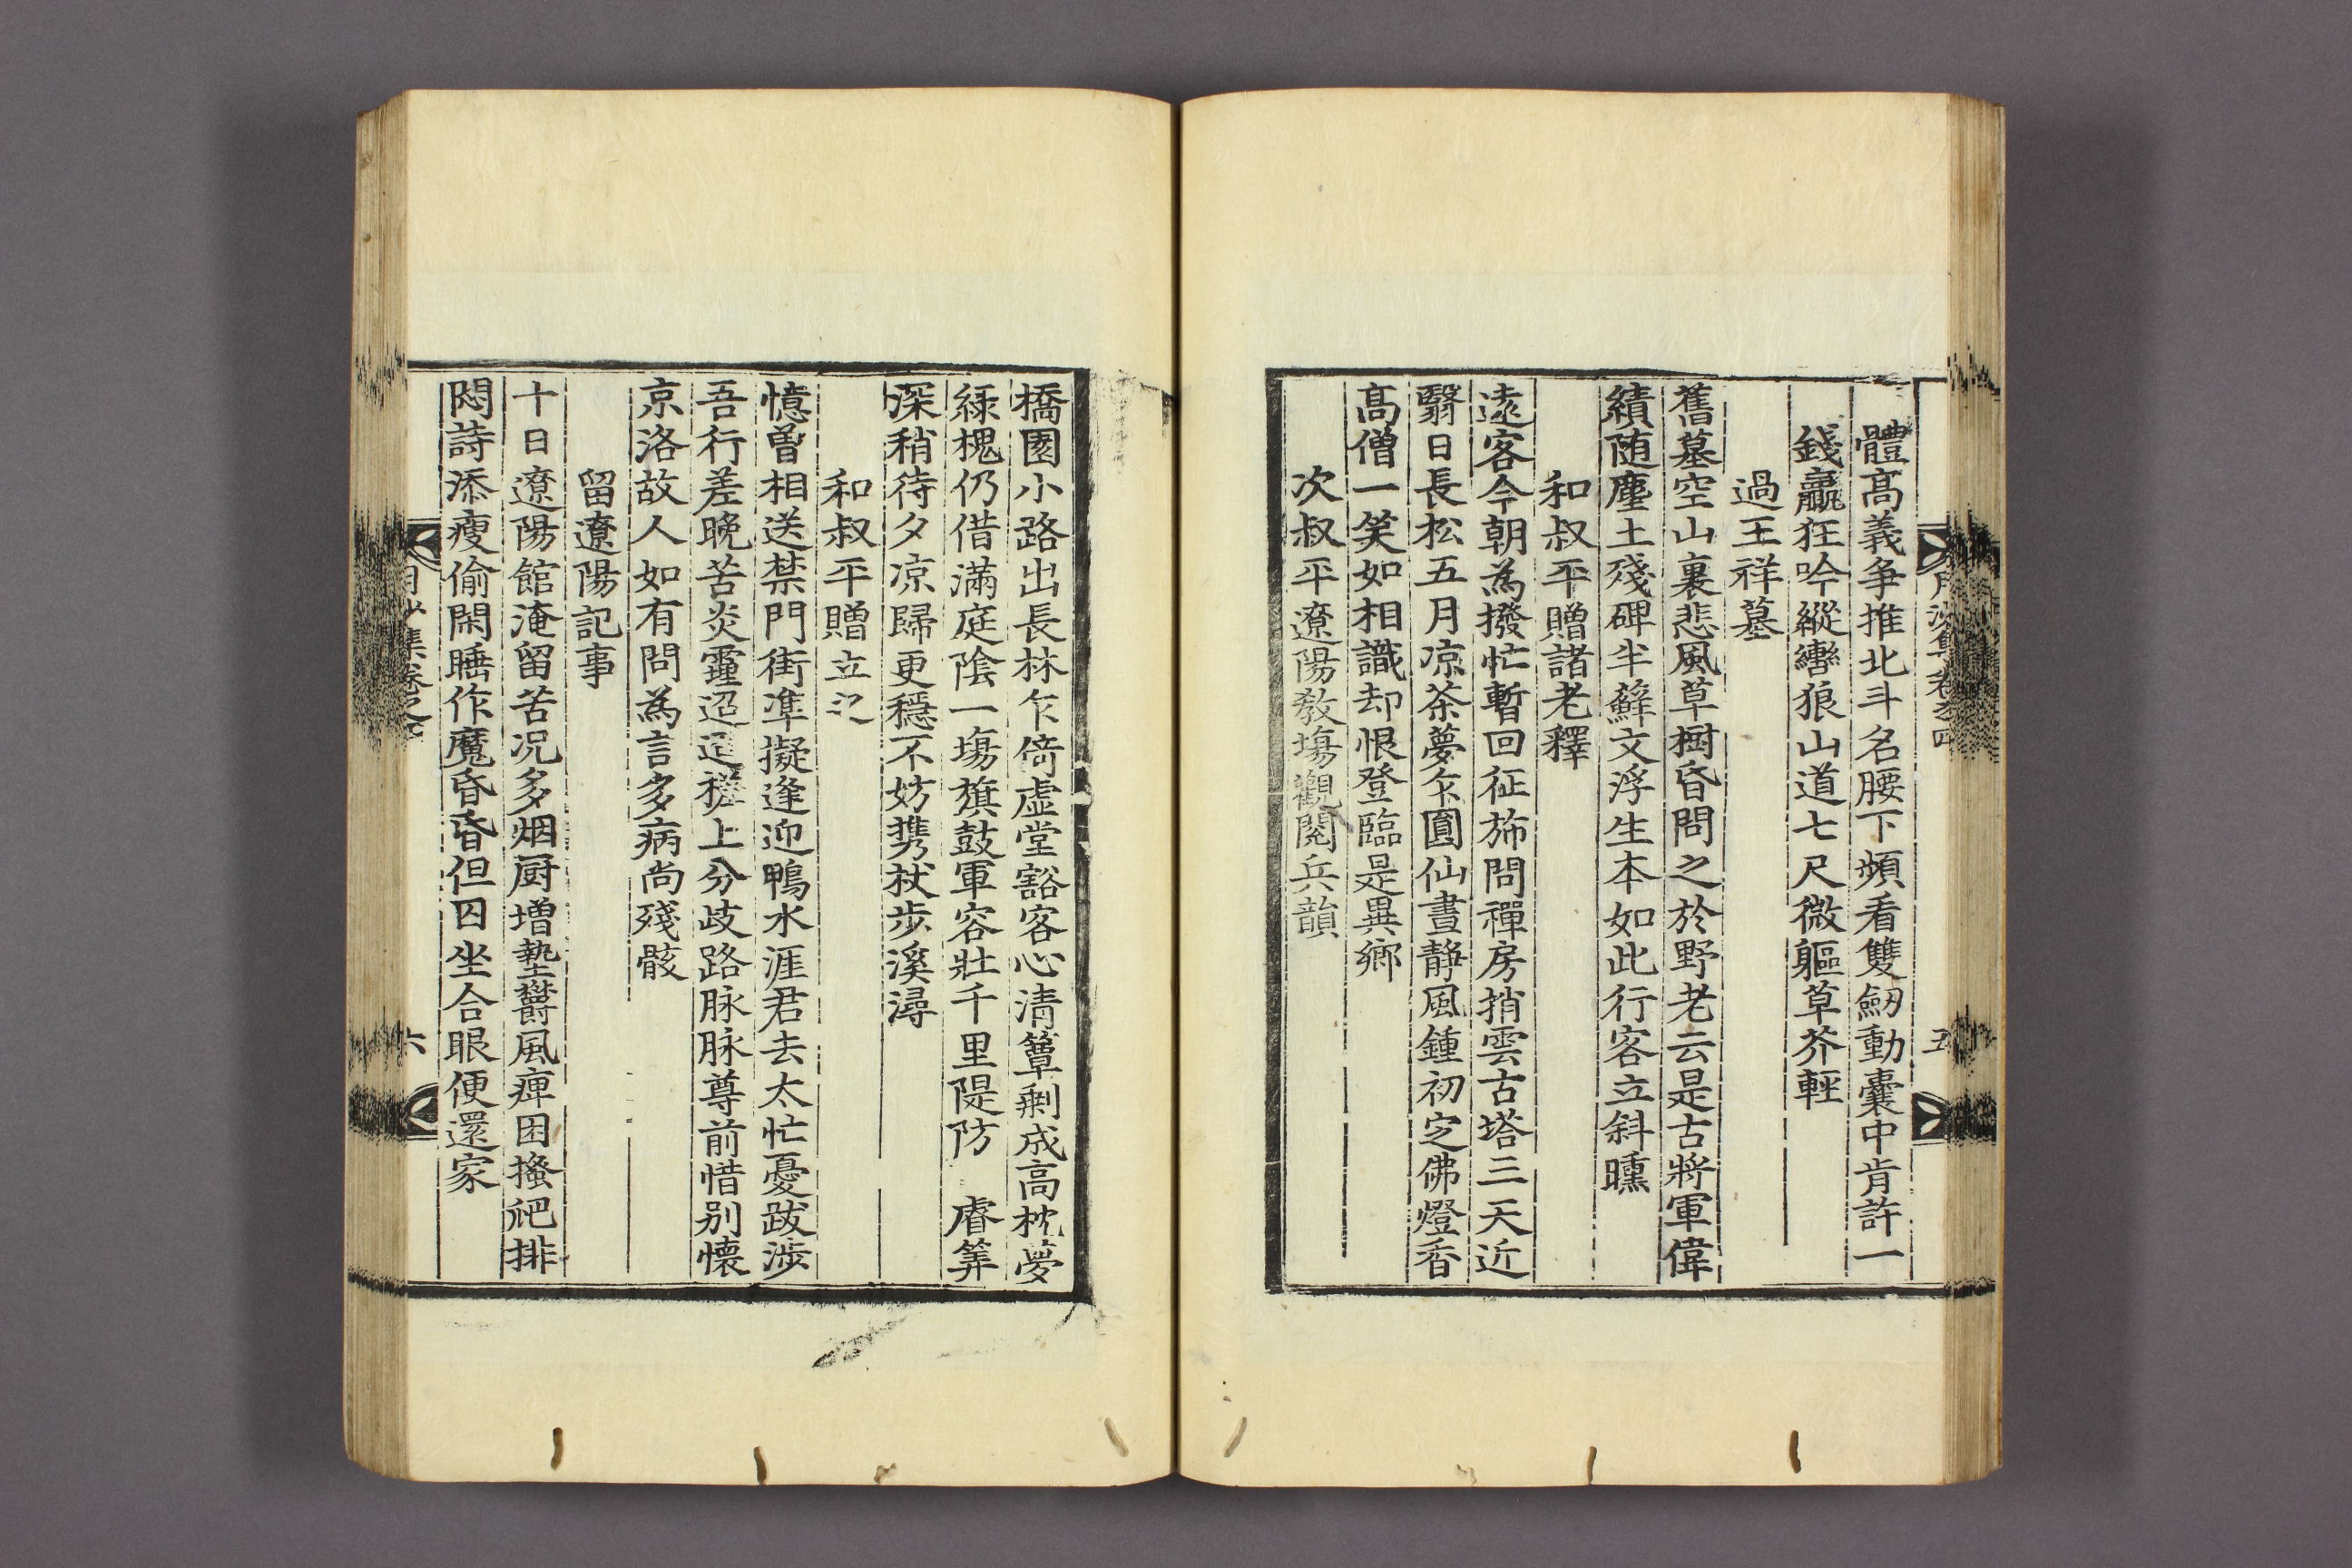 體髙義爭推北斗名腰下頻看雙劒動囊中肯許一
錢贏狂吟縱轡狼山道七尺微軀草芥輕
過王祥墓
舊墓空山裏悲風草樹昏問之於野老云是古將軍偉
績随塵土殘碑半蘚文浮生本如此行客立斜曛
和叔平贈諸老釋
遠客今朝為撥忙暫回征斾問禪房捎雲古塔三天近
翳日長松五月凉茶夢乍圓仙晝靜風鍾初定佛燈香
髙僧一笑如相識却恨登臨是異鄉
次叔平遼陽敎塲觀閱兵韻
五
橋圍小路出長林乍倚虛堂豁客心清簟剩成高枕夢
綠槐仍借滿庭陰一塲旗鼓軍容壯千里隄防 睿筭
深稍待夕凉歸更穩不妨携杖步溪潯
和叔平贈立之
憶曾相送禁門街準擬逢迎鴨水涯君去太忙憂跋涉
吾行差晚苦炎霾迢迢磴上分歧路脉脉尊前惜别懷
京洛故人如有問為言多病尚殘骸
留遼陽記事
十日遼陽館淹留苦况多烟厨增墊欝風痺困搔爬排
悶詩添瘦偷閑睡作魔昏昏但囚坐合眼便還家
六